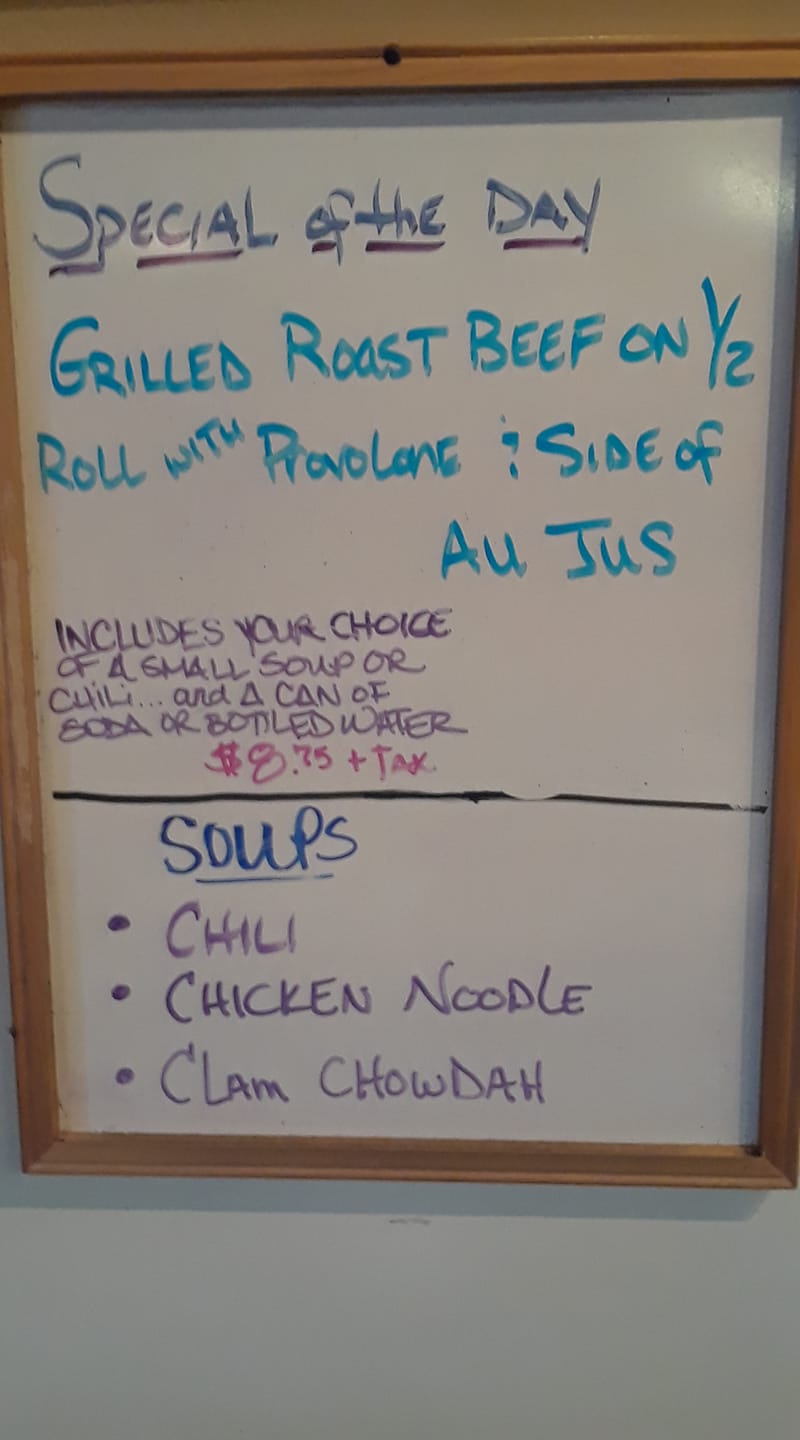 SPECIAL of the DAY
GRILLED ROAST BEEF ON 1/2
ROLL WITH PROVOLONE & SIDE OF
AU JUS
INCLUDES YOUR CHOICE
OF A SMALL SOUP OR
CHILI... and A CAN OF
SODA OR BOTTLED WATER
$8.75 + TAX
SOUPS
• CHILI
• CHICKEN NOODLE
• CLAM CHOWDAH